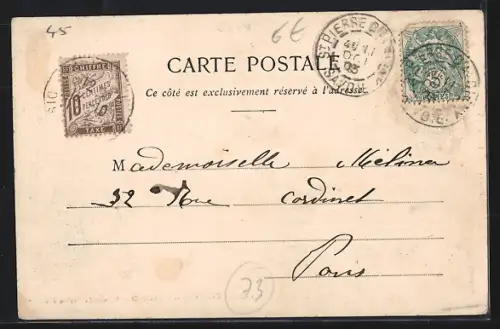 45
6€
CHIFFRE
10 CENTIMES
A PERCEVOIR
TAXE
ST PIERRE
CARTE POSTALE
Ce côté est exclusivement réservé à l'adresse.
Mademoiselle
32 Rue Cardinet
Paris
73